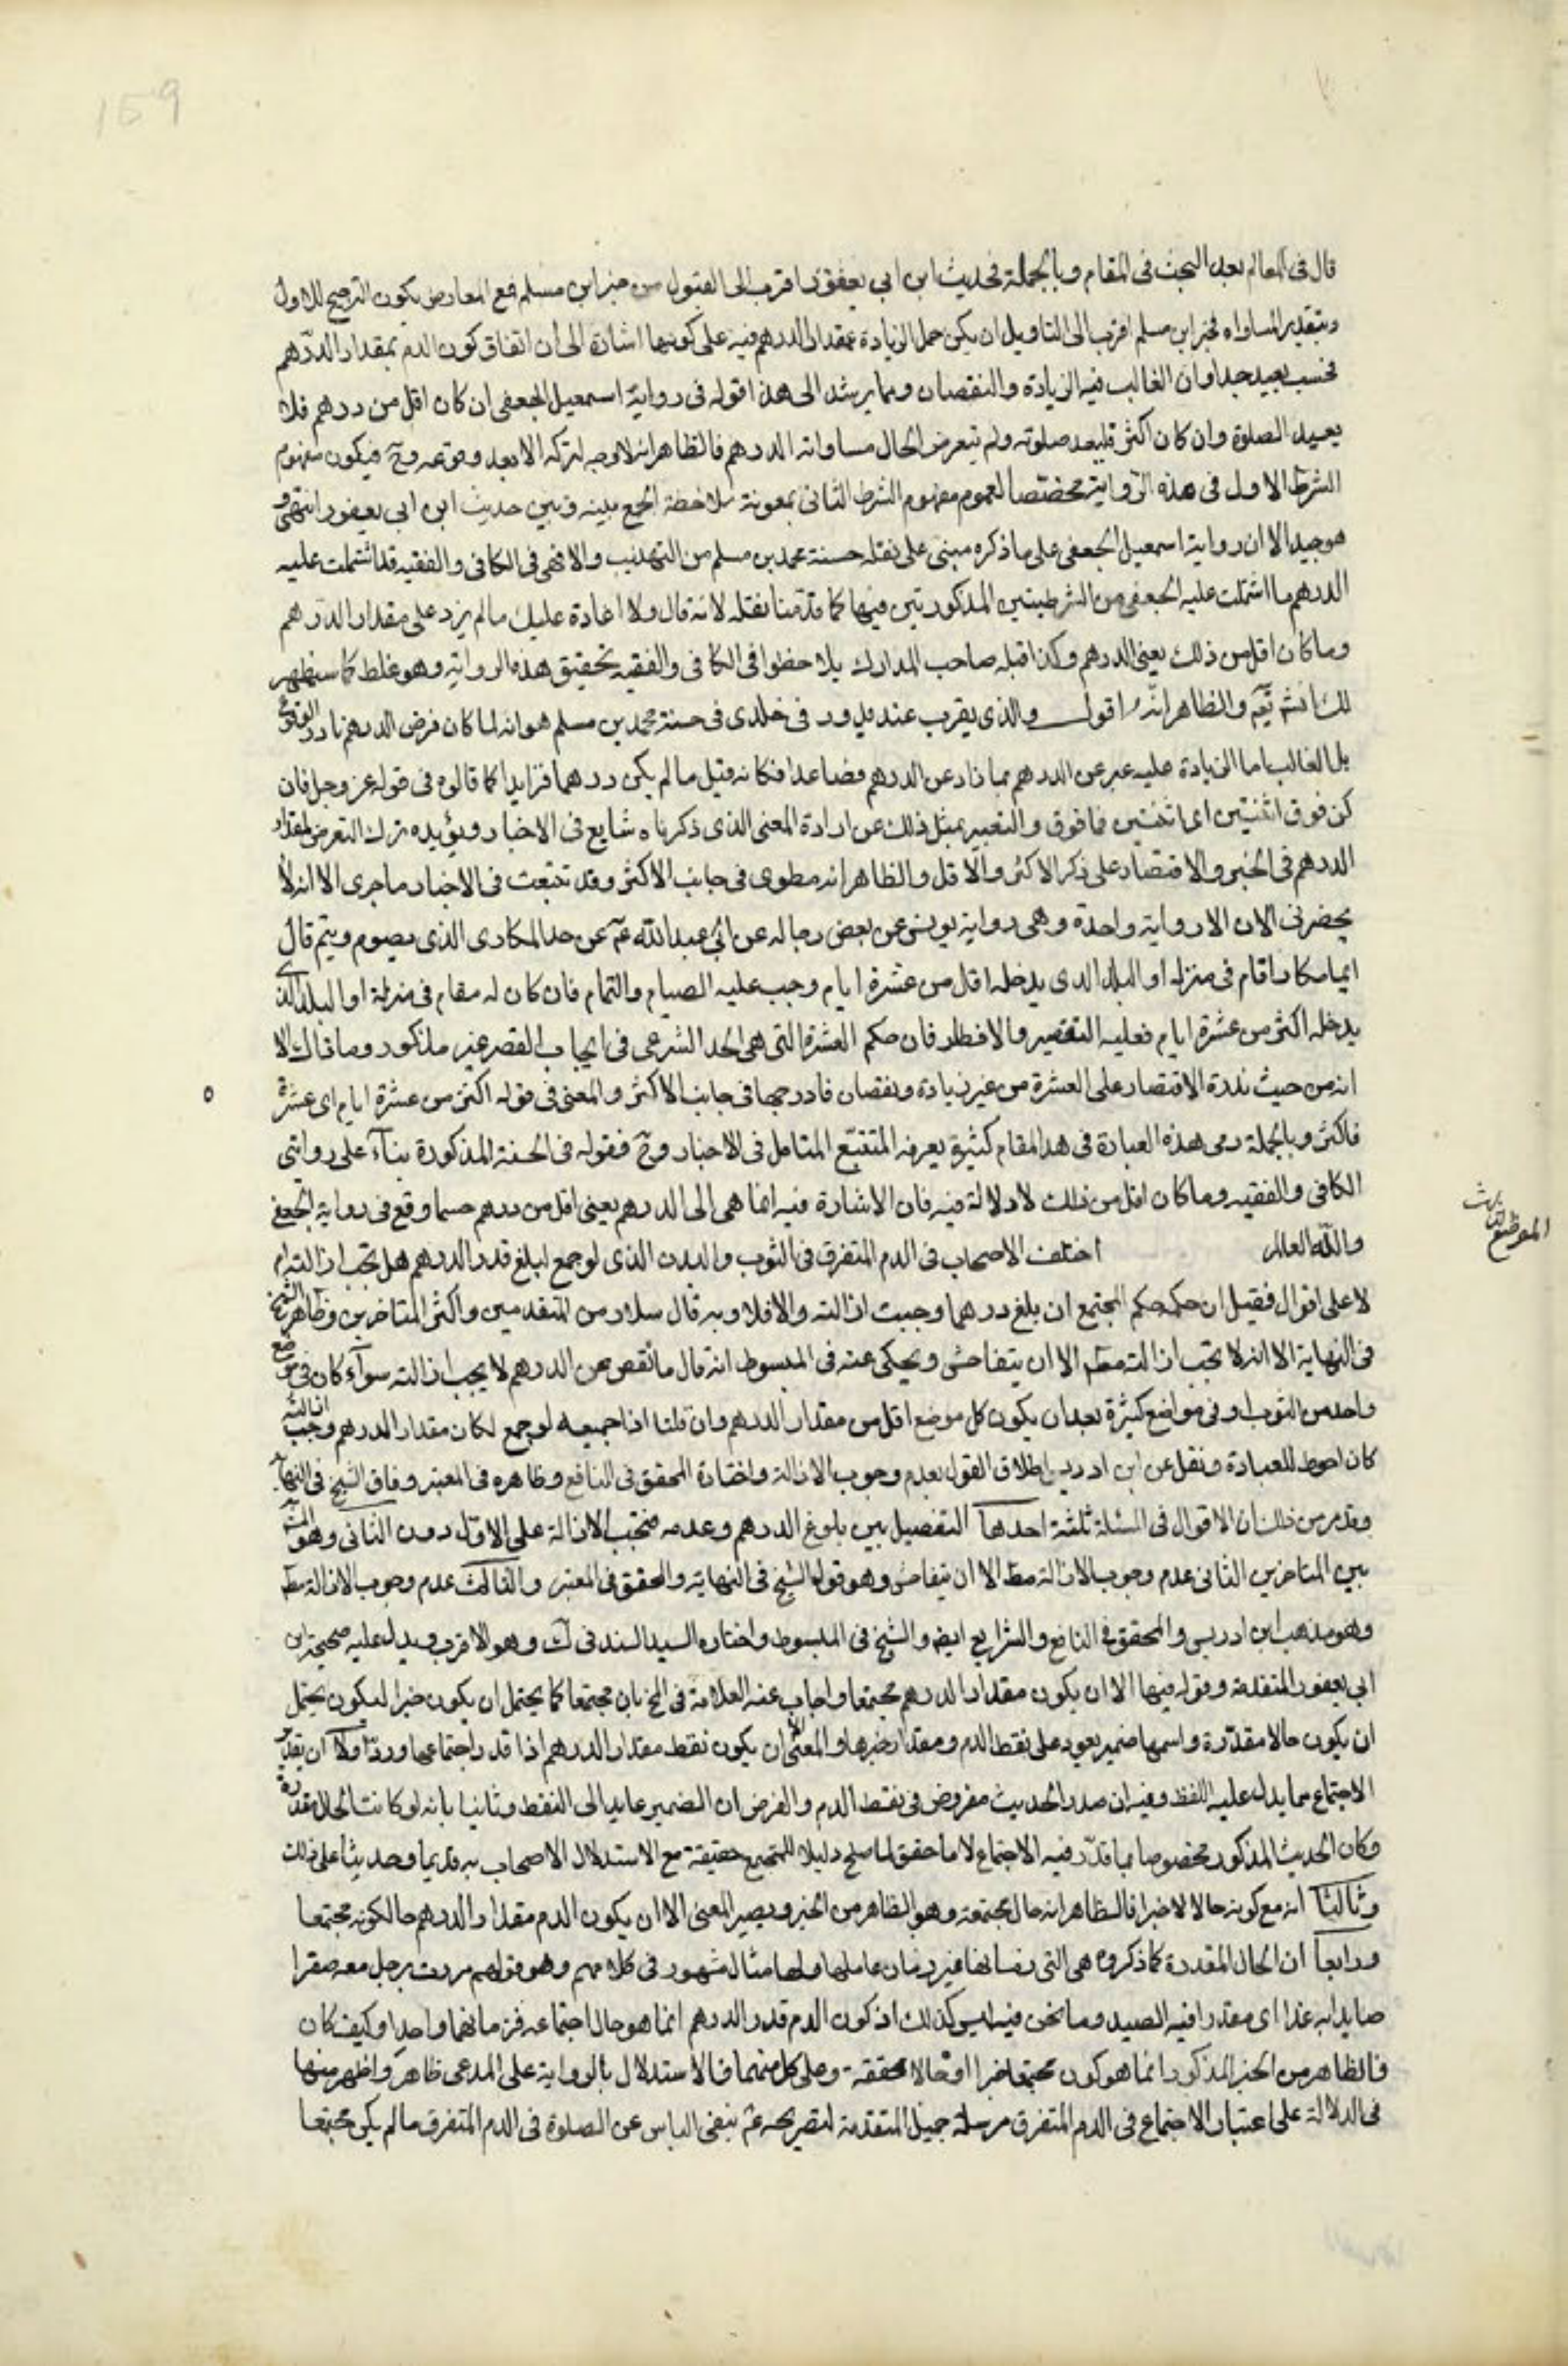 159
قال فى المعالم بعد البحث فى المقام وبالجملة فحديث ابن ابي يعفور اقرب الى القبول من خبر ابن مسلم فمع المعارض يكون الترجيح للاول
وبتقدير المساواه فخبر ابن مسلم اقرب الى التاويل ان يكن حمل الزيادة بمقدار الدرهم فيه على كونها اشارة الى ان اتفاق كون الدم بمقدار الدرهم
فحسب بعيد جدا وان الغالب فيه الزيادة والنقصان ومما يرشد الى هذا قوله فى رواية اسمعيل الجعفى ان كان اقل من درهم فلا
يعيد الصلوة وان كان اكثر فليعد صلوته ولم يتعرض لحال مساواته الدرهم فالظاهر انه لا وجه لتركه الا بعد وقوعه وح فيكون مفهوم
الشرط الاول فى هذه الرواية مخصصا لعموم مفهوم الشرط الثانى بمعونة ملاحظة الجمع بينه وبين حديث ابن ابى يعفور انتهى و
هو جيد الا ان رواية اسمعيل الجعفى على ما ذكره مبنى على نقله حسنة محمد بن مسلم من التهذيب والا فهى فى الكافى والفقيه قد اشتملت عليه
الدرهم ما اشتملت عليه الجعفى من الشرطيتين المذكورتين فيها كما قدمنا نقله لانه قال ولا اعادة عليك ما لم يزد على مقدار الدرهم
وما كان اقل من ذلك يعنى الدرهم وكذا قبله صاحب المدارك بلا حظوا فى الكافى والفقيه بتحقيق هذه الرواية وهو غلط كما سيظهر
لك انشاء الله تعالى والظاهر انه اقول والذى يقرب عندى ويدور فى خلدى فى حسنة محمد بن مسلم هو انه لما كان فرض الدرهم نادر الوقوع
بل الغالب اما الزيادة عليه عبر عن الدرهم بما زاد عن الدرهم فصاعدا فكانه قيل ما لم يكن درهما فزايدا كما قالوه فى قوله عز وجل فان
كن فوق اثنتين اى اثنتين فما فوق والتعبير بمثل ذلك عن ارادة المعنى الذى ذكرناه شايع فى الاخبار ويؤيده ترك التعرض لمقدار
الدرهم فى الخبر والاقتصار على ذكر الاكثر والاقل والظاهر انه مطوى فى جانب الاكثر وقد تتبعت فى الاخبار ما جرى الا انه لا
يحضرنى الان الا رواية واحدة وهى رواية يونس عن بعض رجاله عن ابى عبدالله عم عن حد المكارى الذى يصوم ويتم قال
ايما مكار اقام فى منزله او البلد الذى يدخله اقل من عشرة ايام وجب عليه الصيام والتمام فان كان له مقام فى منزله او البلد الذى
يدخله اكثر من عشرة ايام فعليه التقصير والافطار فان حكم العشرة التى هى الحد الشرعى فى ايجاب القصر غير مذكور وما ذاك الا
انه من حيث ندرة الاقتصار على العشرة من غير زيادة ونقصان فادرجها فى جانب الاكثر والمعنى فى قوله اكثر من عشرة ايام اى عشرة
فاكثر وبالجملة رمى هذه العبارة فى هذا المقام كثيرة يعرفه المتتبع المتامل فى الاخبار وح فقوله فى الحسنة المذكورة بناء على روايتى
الكافى والفقيه وما كان اقل من ذلك لا دلالة فيه فان الاشارة فيه انما هى الى الدرهم يعنى اقل من درهم حسبما وقع فى رواية الجعفى
والله العالم اختلف الاصحاب فى الدم المتفرق فى الثوب والبدن الذى لو جمع لبلغ قدر الدرهم هل تجب ازالته ام
لا على اقوال فقيل ان حكمه حكم المجتمع ان بلغ درهما وجبت ازالته والا فلا وبه قال سلار من المتقدمين واكثر المتاخرين وظاهر الشيخ
فى النهاية الا انه لا تجب ازالته مط الا ان يتفاحش ويحكى عنه فى المبسوط انه قال ما نقص عن الدرهم لا يجب ازالته سوآء كان فى موضع
واحد من الثوب او فى مواضع كثيرة بعد ان يكون كل موضع اقل من مقدار الدرهم وان قلنا اذا جميعه لو جمع لكان مقدار الدرهم وجب ازالته
كان احوط للعبادة ونقل عن ابن ادريس اطلاق القول بعدم وجوب الازالة واختاره المحقق فى النافع وظاهره فى المعتبر وفاق الشيخ فى النهاية
وقد مر من ذلك ان الاقوال فى المسئلة ثلثة احدها التفصيل بين بلوغ الدرهم وعدمه فتجب الازالة على الاول دون الثانى وهو المش
بين المتاخرين الثانى عدم وجوب الازالة مط الا ان يتفاحش وهو قول الشيخ فى النهاية والمحقق فى المعتبر والثالث عدم وجوب الازالة مط
وهو مذهب ابن ادريس والمحقق فى النافع والشرايع ايض والشيخ فى المبسوط واختاره السيد السند فى ك وهو الاقرب ويدل عليه صحيحة ابن
ابى يعفور المتقدمة وقوله فيها الا ان يكون مقدار الدرهم مجتمعا واجاب عنه العلامة فى المخ بان مجتمعا كما يحتمل ان يكون خبرا ليكون يحتمل
ان يكون حالا مقدرة واسمها ضمير يعود على نقط الدم ومقدار خبرها والمعنى الا ان يكون نقط مقدار الدرهم اذا قدر اجتماعها ورد اولا ان تقدير
الاجتماع مما يدل عليه اللفظ وفيه ان صدر الحديث مفروض فى نقط الدم والفرض ان الضمير عايد الى النقط وثانيا بانه لو كانت الحال مقدرة
وكان الحديث المذكور مخصوصا بما قدر فيه الاجتماع لا ما حقق لما صلح دليلا للمجتمع حقيقة مع الاستدلال الاصحاب به قديما وحديثا على ذلك
وثالثا انه مع كونه حالا لا خبرا فالظاهر انه حال مجتمعة وهو الظاهر من الخبر ويصير المعنى الا ان يكون الدم مقدار الدرهم حالكونه مجتمعا
ورابعا ان الحال المقدرة كما ذكروه هى التى زمانها غير زمان عاملها ولها مثال مشهور فى كلامهم وهو قولهم مررت برجل معه صقرا
صايدا به غدا اى مقدرا فيه الصيد وما نحن فيه ليس كذلك اذ كون الدم قدر الدرهم انما هو حال اجتماعه فزمانهما واحد وكيف كان
فالظاهر من الخبر المذكور انما هو كون مجتمعا خبرا او حالا محققة وعلى كل منهما فالاستدلال بالرواية على المدعى ظاهر واظهر منها
فى الدلالة على اعتبار الاجتماع فى الدم المتفرق مرسلة جميل المتقدمة لتصريحه عم بنفى الباس عن الصلوة فى الدم المتفرق ما لم يكن مجتمعا